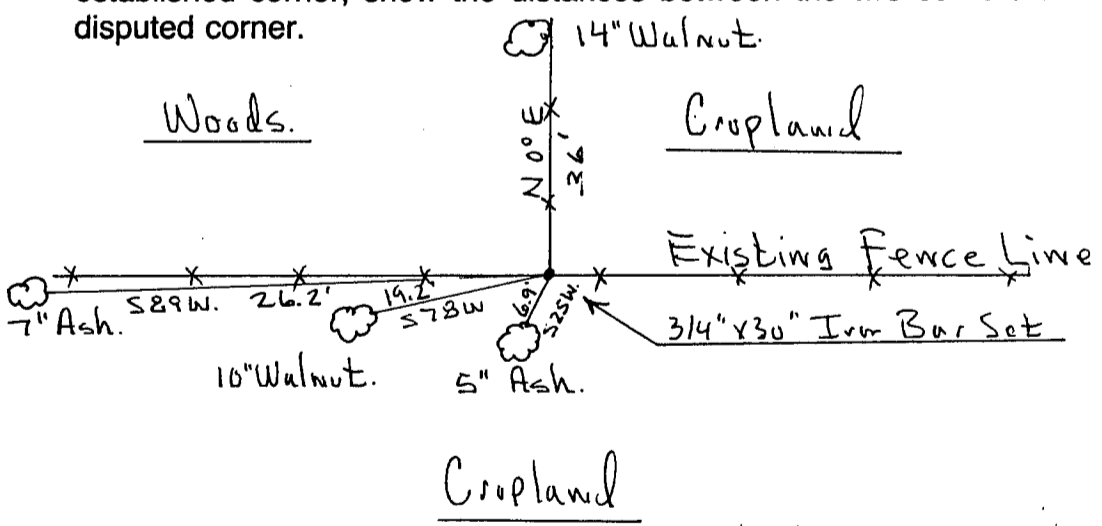 disputed corner.
14" Walnut.
Woods.
Cropland
N 0° E
36'
Existing Fence Line
7" Ash.
S89W. 26.2'
19.2'
S78W
6.9'
S25W.
3/4"x30" Iron Bar Set
10" Walnut.
5" Ash.
Cropland